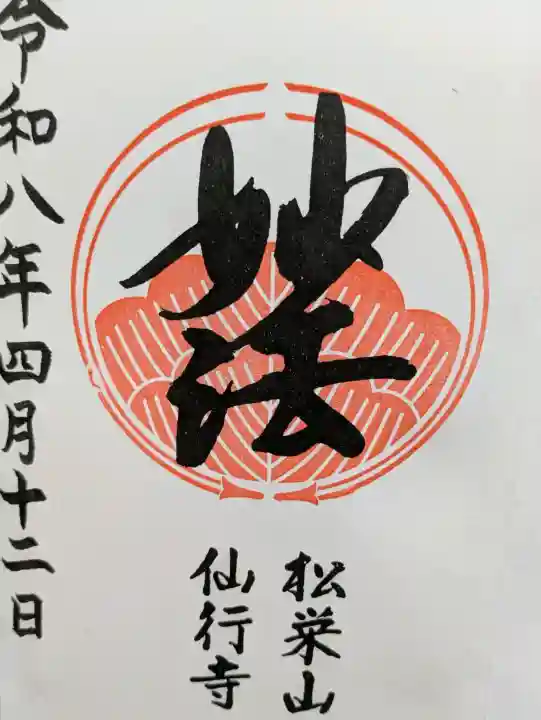 妙法
松栄山
仙行寺
令和八年四月十二日